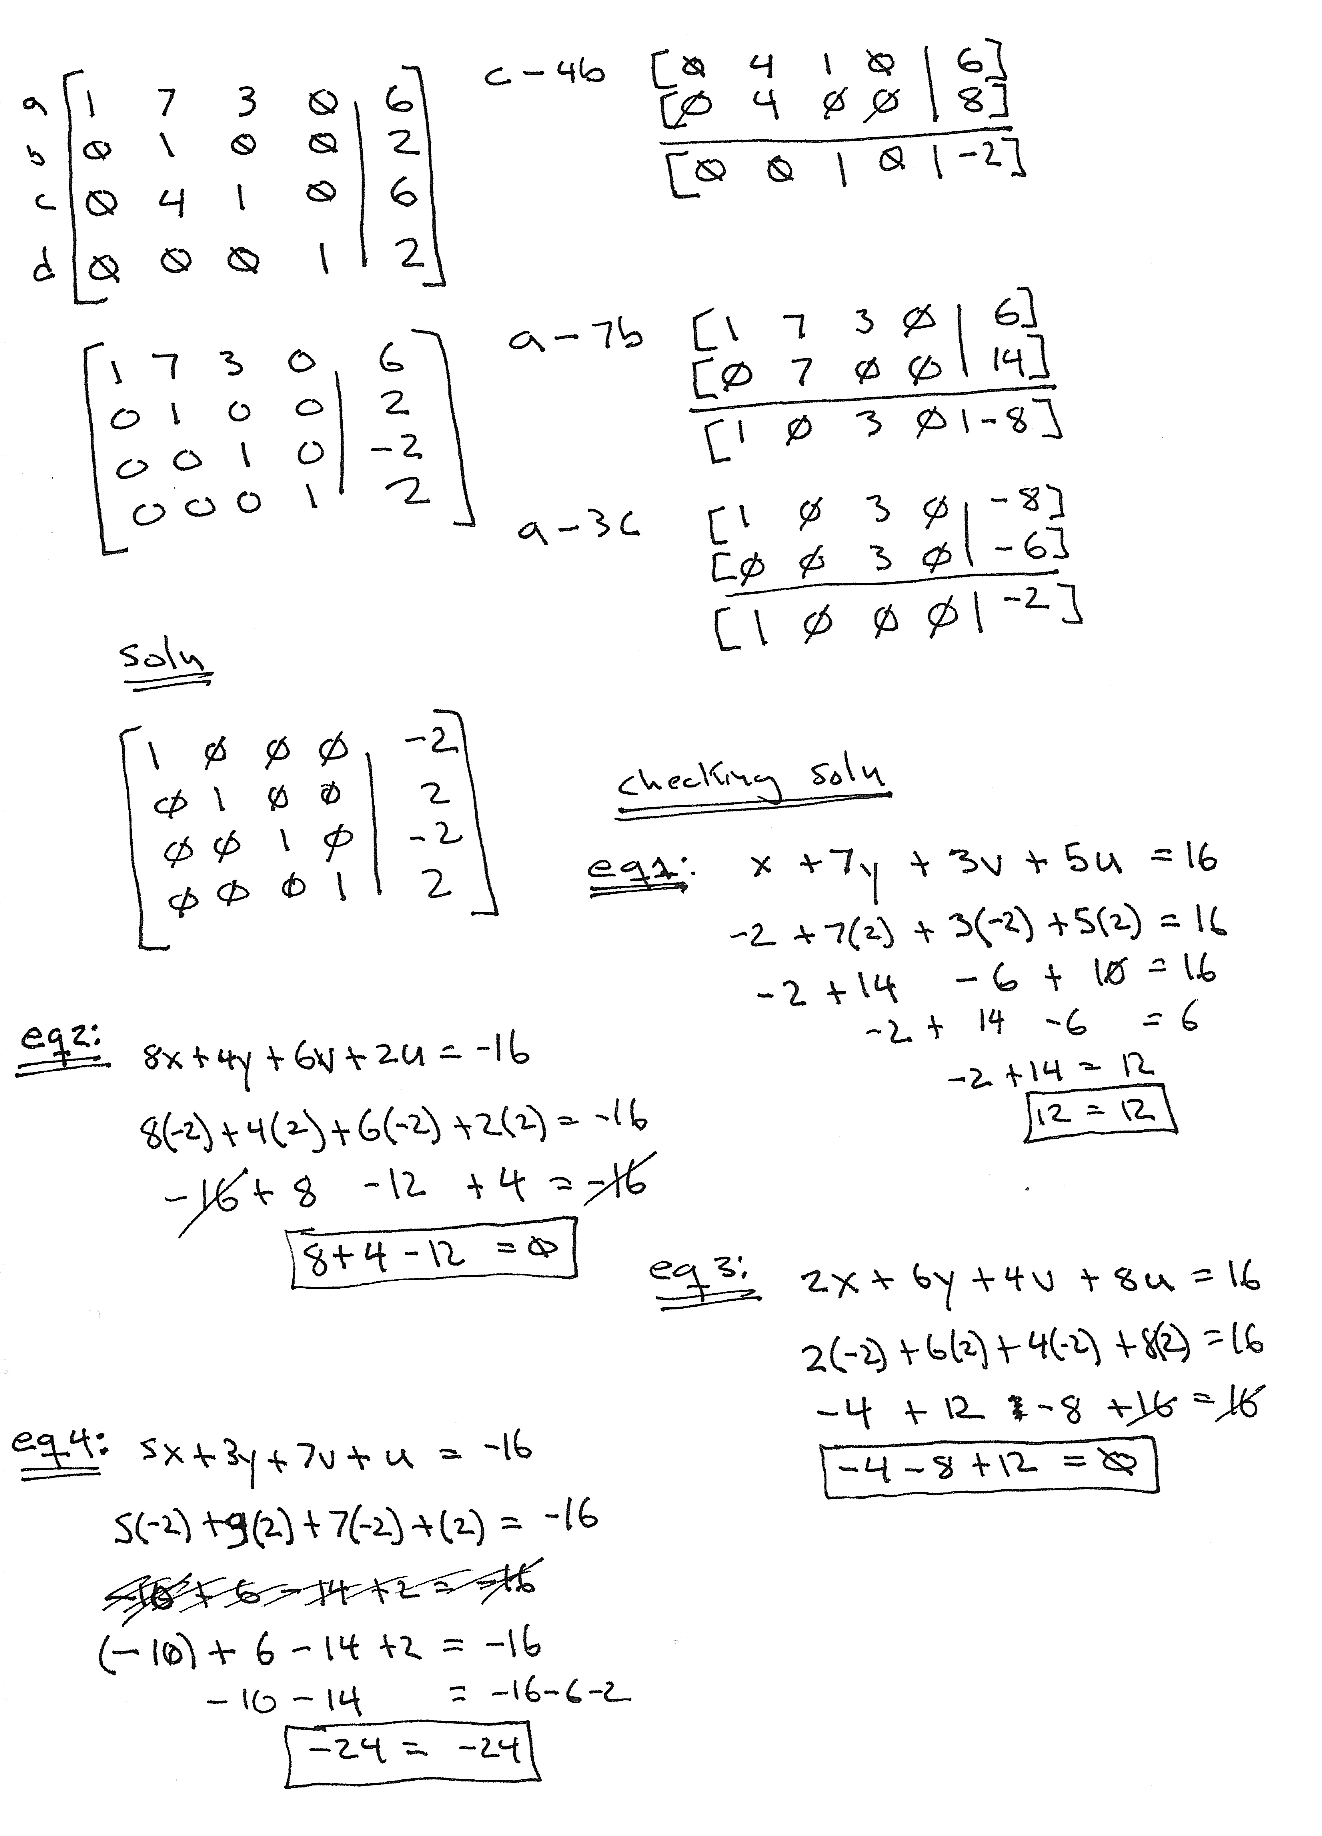 a [1 7 3 0 | 6]
b [0 1 0 0 | 2]
c [0 4 1 0 | 6]
d [0 0 0 1 | 2]
c - 4b [0 4 1 0 | 6]
[0 4 0 0 | 8]
[0 0 1 0 | -2]
[1 7 3 0 | 6]
[0 1 0 0 | 2]
[0 0 1 0 | -2]
[0 0 0 1 | 2]
a - 7b [1 7 3 0 | 6]
[0 7 0 0 | 14]
[1 0 3 0 | -8]
a - 3c [1 0 3 0 | -8]
[0 0 3 0 | -6]
[1 0 0 0 | -2]
soln
[1 0 0 0 | -2]
[0 1 0 0 | 2]
[0 0 1 0 | -2]
[0 0 0 1 | 2]
checking soln
eq1: x + 7y + 3v + 5u = 16
-2 + 7(2) + 3(-2) + 5(2) = 16
-2 + 14 - 6 + 10 = 16
-2 + 14 - 6 = 6
-2 + 14 = 12
12 = 12
eq2: 8x + 4y + 6v + 2u = -16
8(-2) + 4(2) + 6(-2) + 2(2) = -16
-16 + 8 - 12 + 4 = -16
8 + 4 - 12 = 0
eq3: 2x + 6y + 4v + 8u = 16
2(-2) + 6(2) + 4(-2) + 8(2) = 16
-4 + 12 - 8 + 16 = 16
-4 - 8 + 12 = 0
eq4: 5x + 3y + 7v + u = -16
5(-2) + 3(2) + 7(-2) + (2) = -16
-10 + 6 - 14 + 2 = -16
(-10) + 6 - 14 + 2 = -16
-10 - 14 = -16 - 6 - 2
-24 = -24